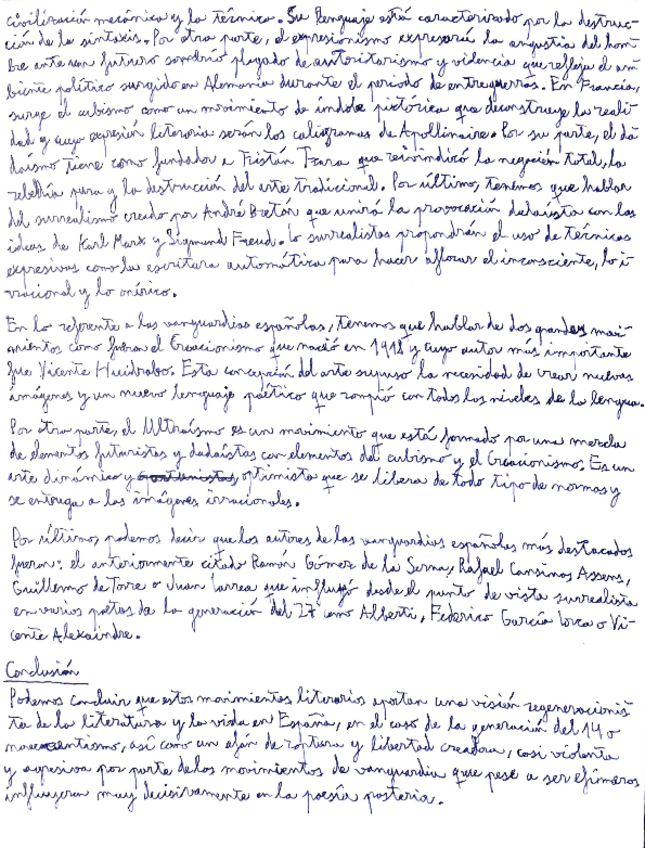 civilización mecánica y la técnica. Su lenguaje está caracterizado por la destruc-
ción de la sintaxis. Por otra parte, el expresionismo expresará la angustia del hom-
bre ante un futuro sombrío plagado de autoritarismo y violencia que refleja el am-
biente político surgido en Alemania durante el periodo de entreguerras. En Francia,
surge el cubismo como un movimiento de índole pictórica que deconstruye la reali-
dad y cuya expresión literaria serán los caligramas de Apollinaire. Por su parte, el da-
daísmo tiene como fundador a Tristán Tzara que reivindicó la negación total, la
rebeldía pura y la destrucción del arte tradicional. Por último, tenemos que hablar
del surrealismo creado por André Bretón que unirá la provocación dadaísta con las
ideas de Karl Marx y Sigmund Freud. Lo surrealistas propondrán el uso de técnicas
expresivas como la escritura automática para hacer aflorar el inconsciente, lo i-
rracional y lo onírico.
En lo referente a las vanguardias españolas, tenemos que hablar de dos grandes mov-
imientos como fueron el Creacionismo que nació en 1918 y cuyo autor más importante
fue Vicente Huidrobo. Esta concepción del arte supuso la necesidad de crear nuevas
imágenes y un nuevo lenguaje poético que rompió con todos los niveles de la lengua.
Por otra parte, el Ultraísmo es un movimiento que está formado por una mezcla
de elementos futuristas y dadaístas con elementos del cubismo y el Creacionismo. Es un
arte dinámico y optimista que se libera de todo tipo de normas y
se entrega a las imágenes irracionales.
Por último, podemos decir que los autores de las vanguardias españoles más destacados
fueron: el anteriormente citado Ramón Gómez de la Serna, Rafael Cansinos Assens,
Guillermo de Torre o Juan Larrea que influyó desde el punto de vista surrealista
en varios poetas de la generación del 27 como Alberti, Federico García Lorca o Vi-
cente Alexaindre.
Conclusión
Podemos concluir que estos movimientos literarios aportan una visión regeneracionis
ta de la literatura y la vida en España, en el caso de la generación del 14 o
novecentismo, así como un afán de ruptura y libertad creadora, casi violenta
y agresiva por parte de los movimientos de vanguardia que pese a ser efímeros
influyeron muy decisivamente en la poesía posteria.